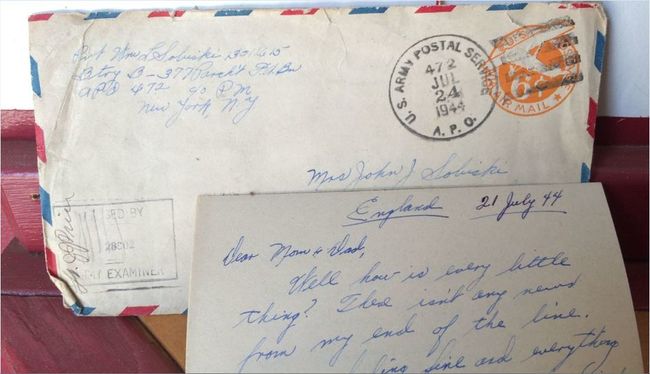 Pvt Wm L Sobiski
Btry B - 377 Parcht F.A.Bn
APO 472 % P.M
New York N.Y
U.S. ARMY POSTAL SERVICE
472
JUL
24
1944
A. P. O.
AIR MAIL
6
Mrs John J Sobiski
ED BY
EXAMINER
England 21 July 44
Dear Mom & Dad,
Well how is every little
thing? There isn't any news
from my end of the line.
fine and everything